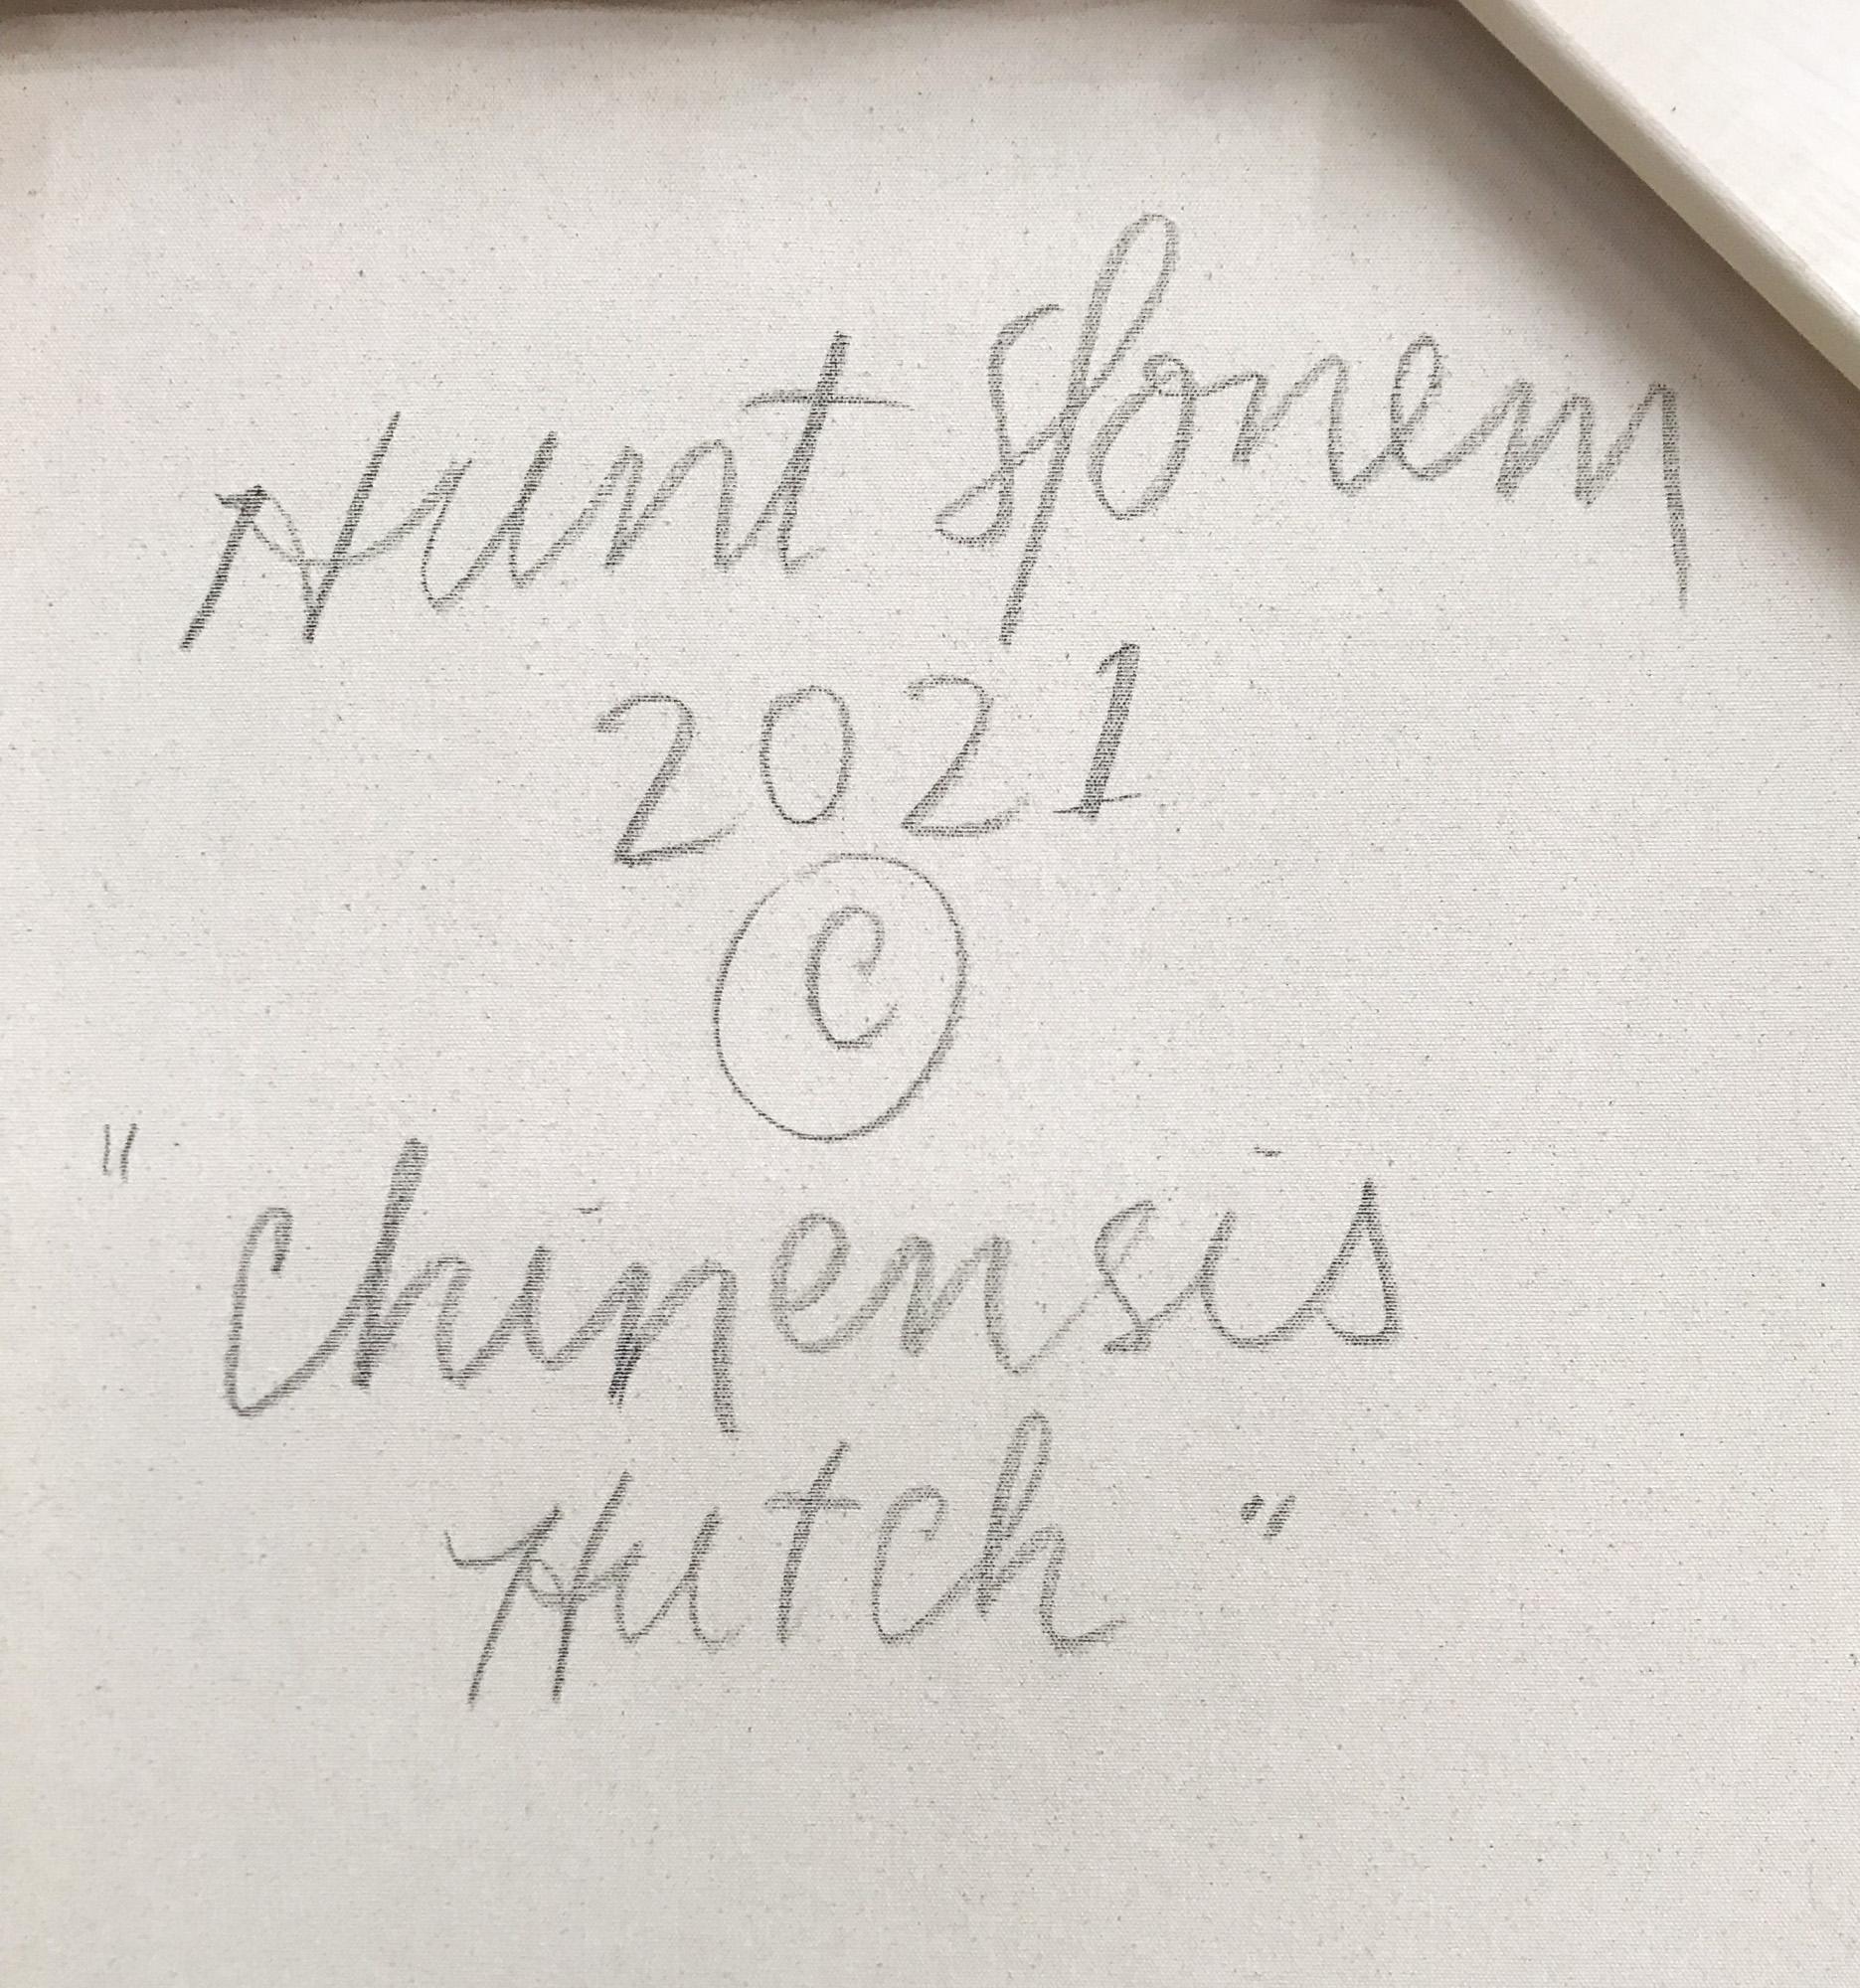 Hunt Slonem
2021
©
"Chinensis
Hutch"